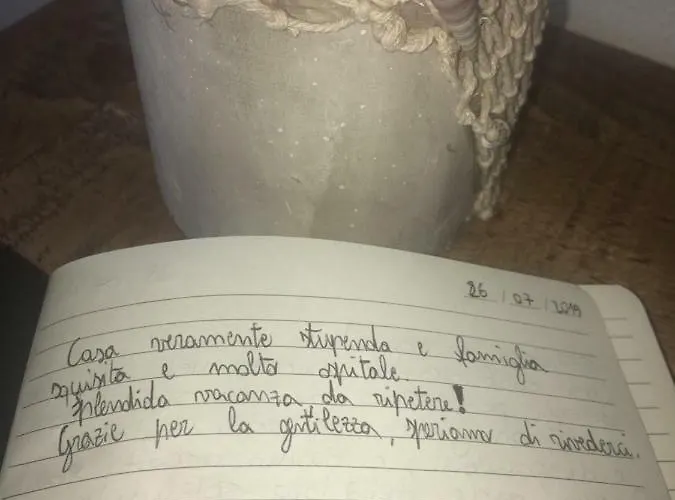 26/07/2019
Casa veramente stupenda e famiglia
squisita e molto ospitale
Splendida vacanza da ripetere!
Grazie per la gentilezza, speriamo di rivederci.